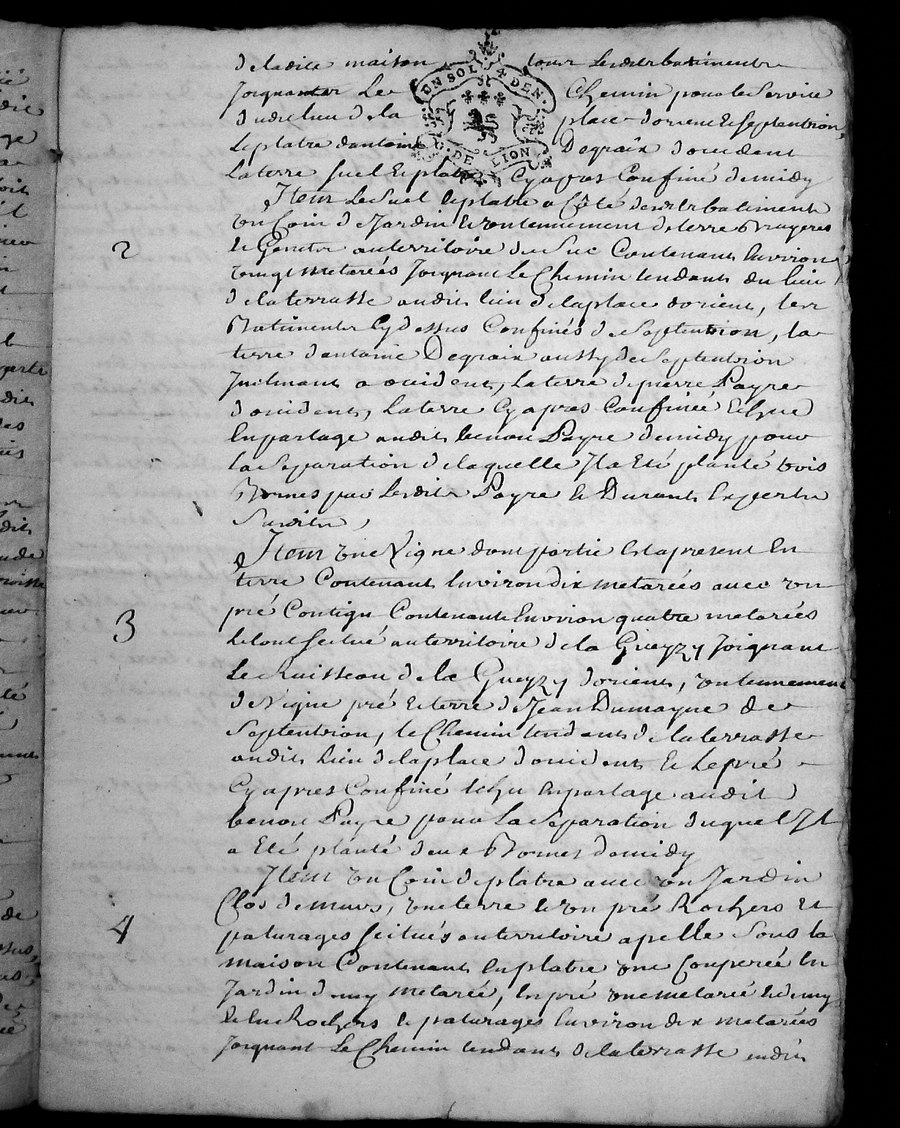 de ladite maison tour lesdits batiments
UN SOL 4 DEN.
Joignants Le Chemin pour le Service
dudit lieu de la place d'orient & Septentrion
Le platre d'antoine Degraix d'occident
G. DE LION
La terre suel & platre Cy apres Confiné de midy
2
Item Le Suel & platre a Côté desdits batiments
un Coin de Jardin & un tennement de terre Bruyeres
& Genets au territoire du Suc Contenant Environ
vingt metarées Joignant Le Chemin tendant du lieu
de la terrasse audit lieu de la place d'orient, les
Batiments Cy dessus Confinés de Septentrion, la
terre d'antoine Degraix aussy de Septentrion
Inclinant a occident, La terre de pierre Payre
d'occident, La terre Cy apres Confinée Echue
En partage audit benoit Payre de midy pour
la Separation de laquelle Il a Eté planté trois
Bornes par Lesdits Payre & Durant Experts
Susdits,
3
Item une Vigne dont partie Est a present En
terre Contenant Environ dix metarées avec un
pré Contigu Contenant Environ quatre metarées
le tout scitué au territoire de la Gueyzy Joignant
Le Ruisseau de la Gueyzy d'orient, un tennement
de Vigne pré & terre de Jean Dumayne de
Septentrion, le Chemin tendant de la terrasse
audit Lieu de la place d'occident & Le pré
Cy apres Confiné Echu En partage audit
benoit Payre pour La Separation duquel Il
a Eté planté deux Bornes de midy
4
Item un Coin de platre avec un Jardin
Clos de murs, une terre & un pré Rochers Et
paturages scitués au territoire apellé Sous la
maison Contenant En platre une Couperée En
Jardin demy metarée, En pré une metarée & demy
& En Rochers & paturages Environ dix metarées
Joignant Le Chemin tendant de la terrasse audit